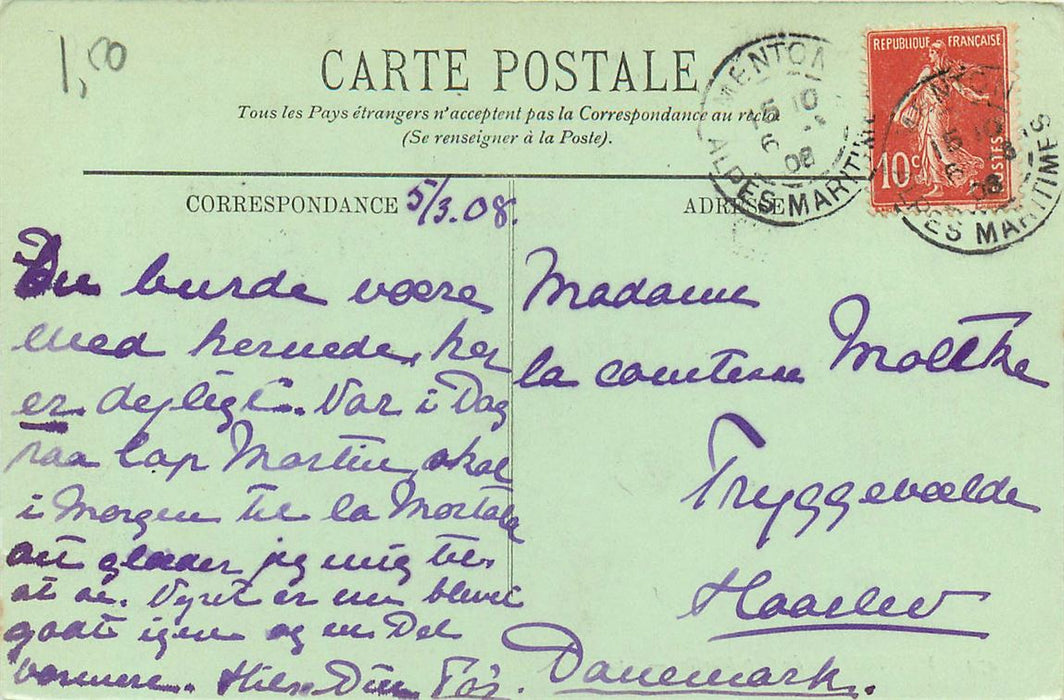 1,00
CARTE POSTALE
Tous les Pays étrangers n'acceptent pas la Correspondance au recto
(Se renseigner à la Poste).
MENTON
15 10
6 -3
08
ALPES MARITIMES
REPUBLIQUE FRANÇAISE
10c
POSTES
MENTON
15 10
6 3
08
ALPES MARITIMES
CORRESPONDANCE
5/3.08.
ADRESSE
Du burde være
med hernede, her
er dejligt. Var i Dag
paa Cap Martin, skal
i Morgen til la Mortola
det glæder jeg mig til
at se. Vejret er nu blevet
godt igen og en Del
varmere. Hils Din Far.
Madame
la comtesse Moltke
Tryggevælde
Haarlev
Danemark.